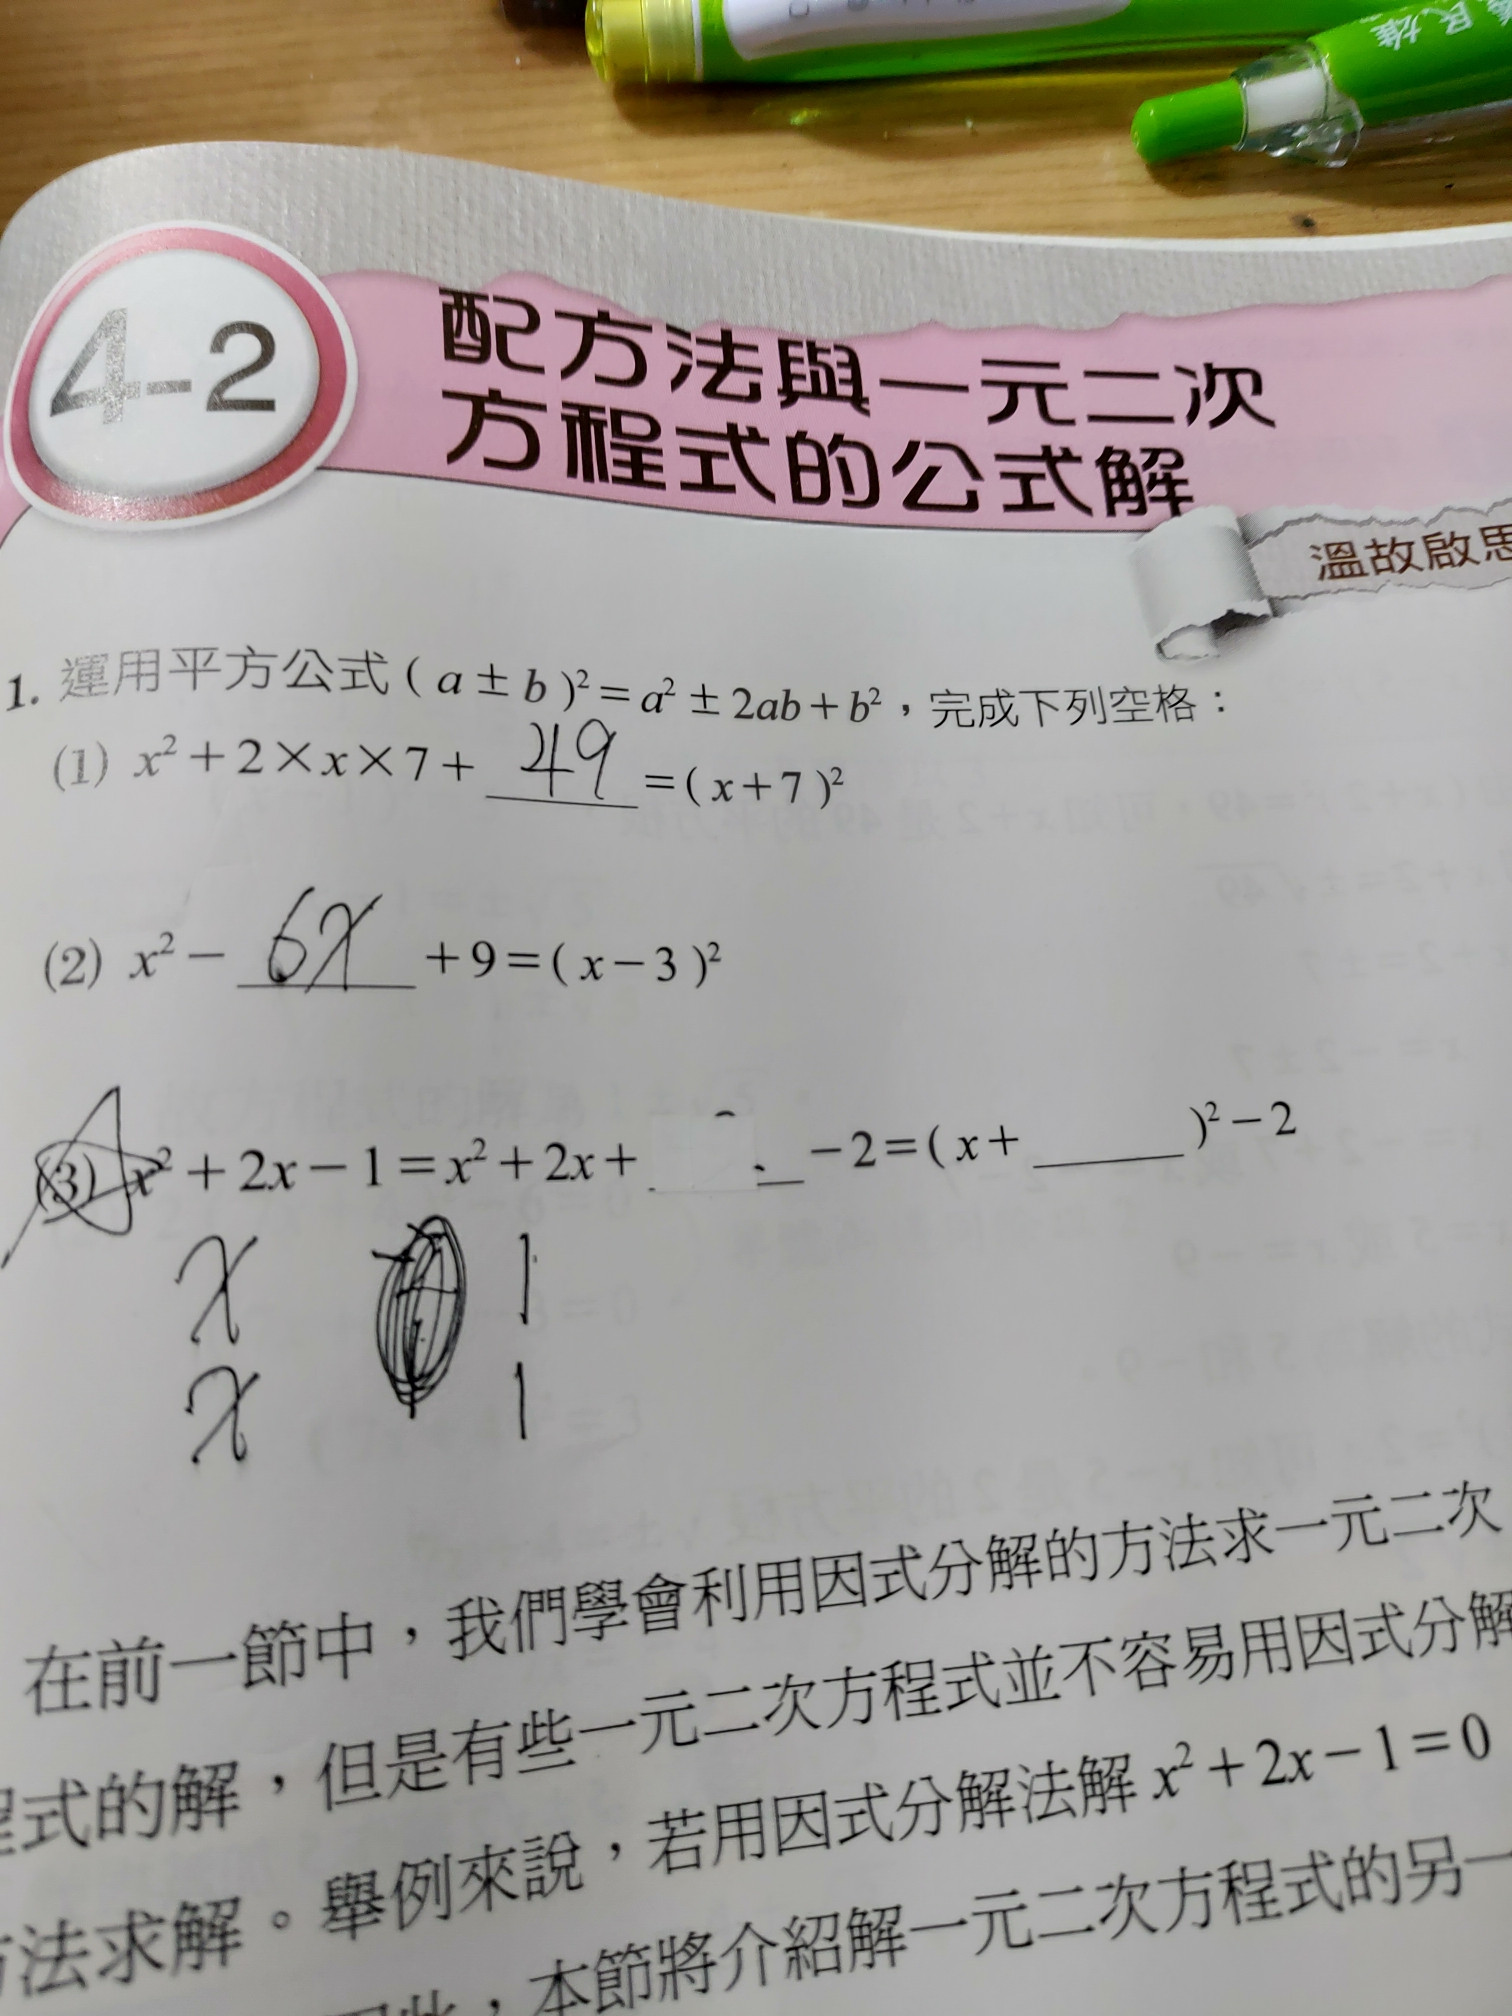 民雄
4-2
配方法與一元二次
方程式的公式解
溫故啟思
1. 運用平方公式 ( a ± b )² = a² ± 2ab + b²，完成下列空格：
(1) x² + 2 × x × 7 + 49 = ( x + 7 )²
(2) x² − 6x + 9 = ( x − 3 )²
(3) x² + 2x − 1 = x² + 2x + ___ − 2 = ( x + ___ )² − 2
x 1
x 1
在前一節中，我們學會利用因式分解的方法求一元二次
程式的解，但是有些一元二次方程式並不容易用因式分解
方法求解。舉例來說，若用因式分解法解 x² + 2x − 1 = 0
，本節將介紹解一元二次方程式的另一